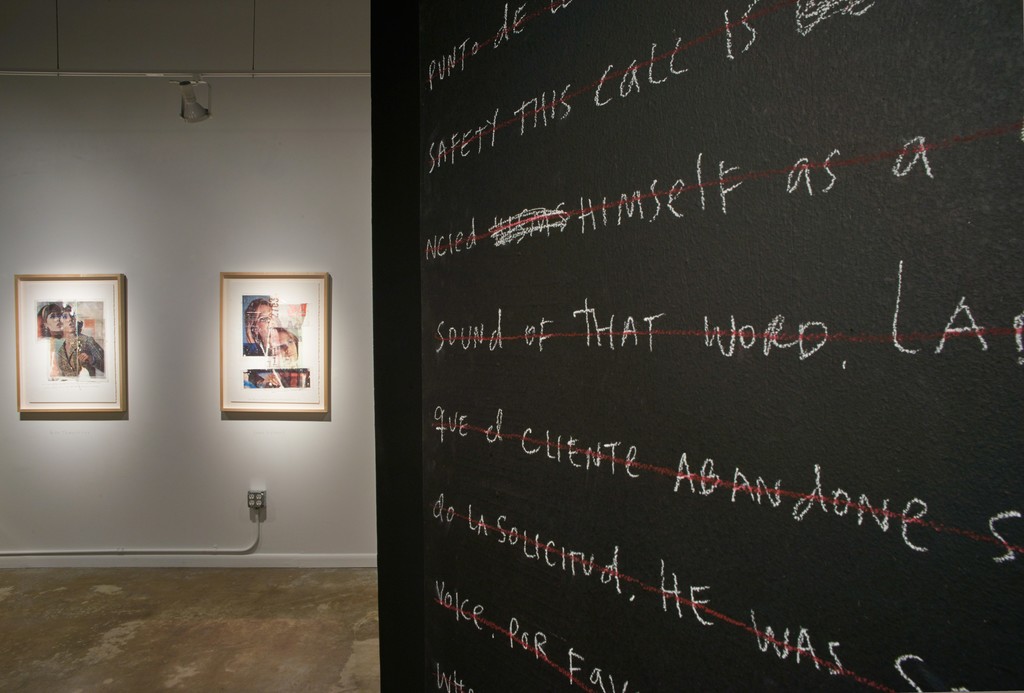 PUNTO dE
SAFETY THIS CALL IS
NCIEd HIMSELF as a
SOUNd OF THAT WORD. LA
QUE el CLIENTE ABANdONE S
dO LA SOLICITUd. HE WAS
VOICE. POR FAV
WHa